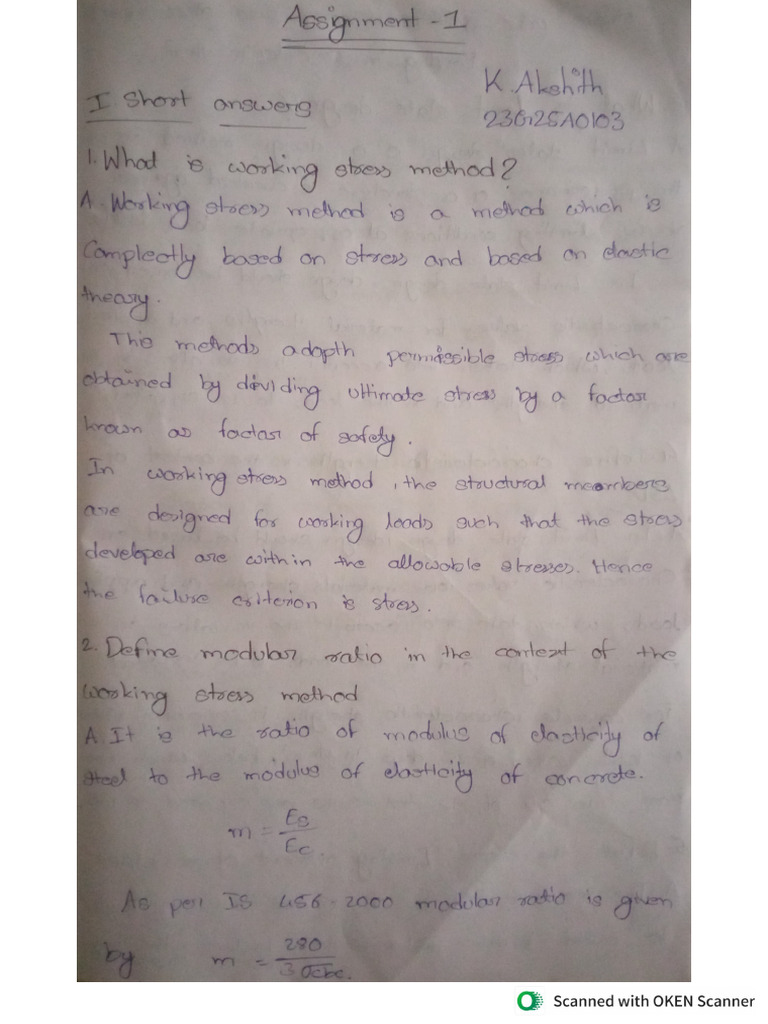 Assignment - 1
K. Akshith
23G125A0103
I Short answers
1. What is working stress method?
A. Working stress method is a method which is
Compleatly based on stress and based on elastic
theory.
This methods adopth permissible stress which are
obtained by dividing ultimate stress by a factor
known as factor of safety.
In working stress method, the structural meambers
are designed for working loads such that the stress
developed are within the allowable stresses. Hence
the failure criterion is stress.
2. Define modular ratio in the context of the
working stress method
A. It is the ratio of modulus of elasticity of
steel to the modulus of elasticity of concrete.
m = Es/Ec.
As per IS 456-2000 modular ratio is given
by m = 280/3σcbc.
Scanned with OKEN Scanner